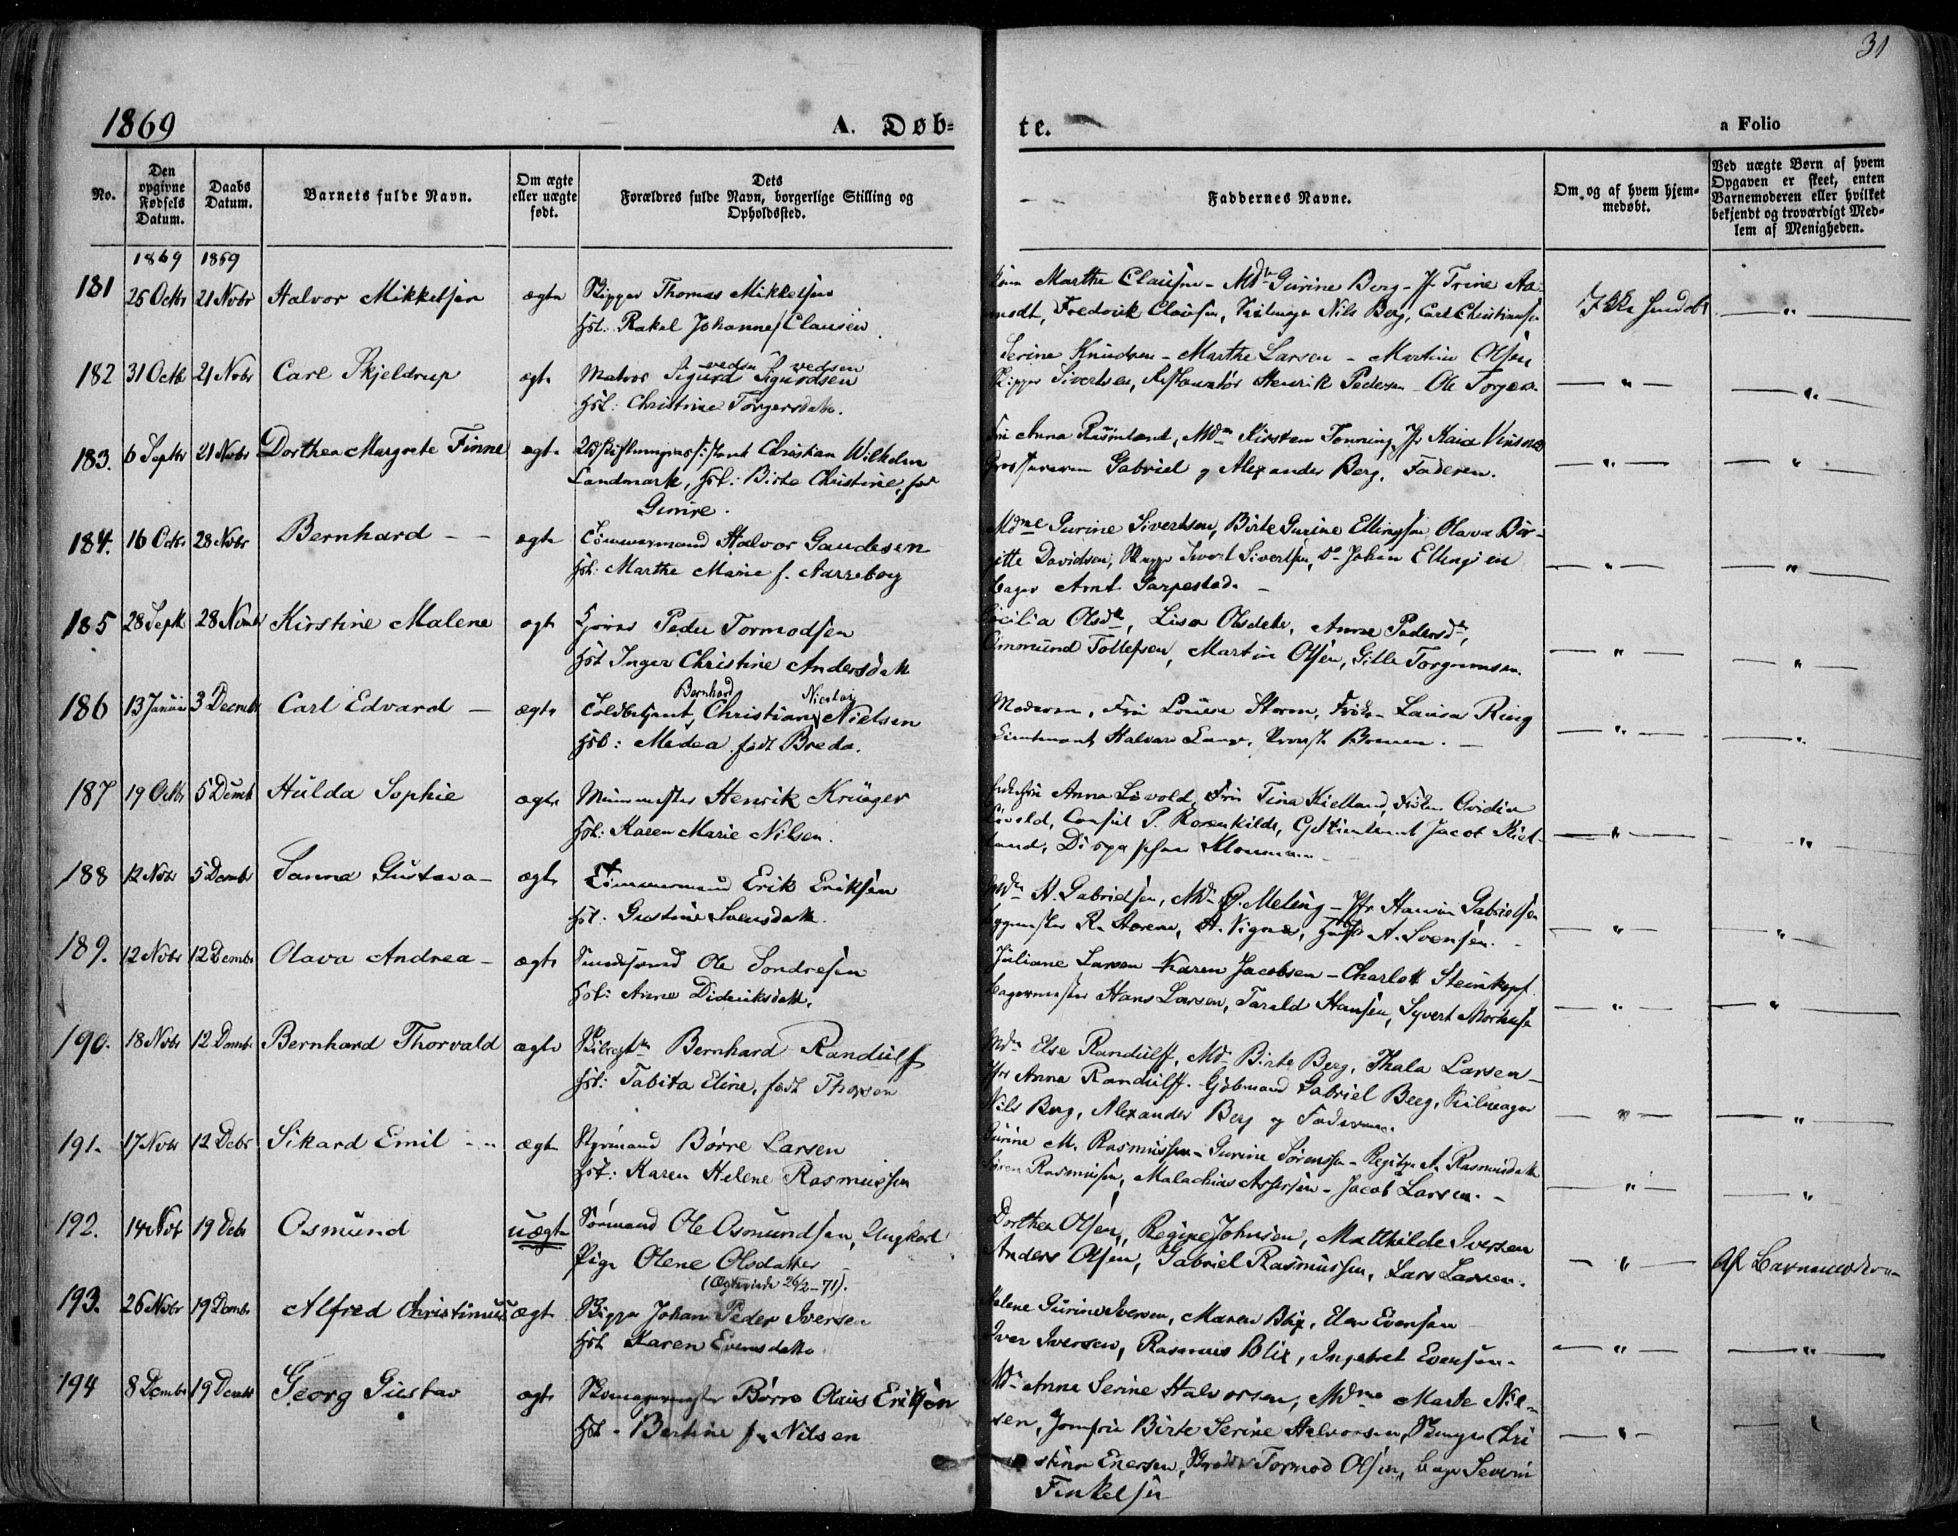 31
1869
A. Døb-
te.
a Folio
No.
Den opgivne Fødsels Datum.
Daabs Datum.
Barnets fulde Navn.
Om ægte eller uægte født.
Dets Forældres fulde Navn, borgerlige Stilling og Opholdssted.
Faddernes Navne.
Om, og af hvem hjem-
medøbt.
Ved uægte Børn af hvem
Opgaven er skeet, enten
Barnemoderen eller hvilket
bekjendt og troværdigt Med-
lem af Menigheden.
1869 1869
181 25 Octbr 21 Novbr Halvor Mikkelsen ægte Skipper Thomas Mikkelsen
Hst: Rakel Johanne Clausen
Marthe Clausen - Mdm Gurine Berg - Jf Trine Aa-
modt, Fredrik Clausen, Nils Berg, Carl Christiansen
Ikke
182 31 Octb 21 Nvbr Carl Skjeldrup ægte Matros Sigurd Sigurdsen
Hst: Christine Torgersdatt.
Serine Knudsen - Marthe Larsen - Martin Olsen
Skipper Sivertsen, Henrik Pedersen - Ole Torgers
183. 6 Septbr 21 Novbr Dorthea Margrete Finne ægte Christian Wilhelm
Landmark, Hst: Birte Christine, fød
Anna Rasmussen, Mdm Kirsten Tonning, Jf Kaia
Gabriel og Alexander Berg, Faderen.
184. 16 Octbr 28 Novbr Bernhard - - ægte Tømmermand Halvor Gaudesen
Hst: Marthe Marie f. Aarrebog
Mdme Gurine Sivertsen, Birte Gurine Ellingsen Olava Bir-
gitte Davidsen, Sivert Sivertsen, Do Johan Ellingsen
Arnt Garpestad. -
185 28 Septb 28 Novmb Kirstine Malene ægte Peder Tormodsen
Hst Inger Christine Andersdatt
Cicilia Olsdtr, Lisa Olsdatr, Anne Pedersdtr,
Ommund Tollefsen, Martin Olsen, Gitle Torgrimsen.
186 13 Januar 3 Decmbr Carl Edvard - ægte Toldbetjent, Christian Bernhard Nicolai Nielsen
Hst: Medea født Breda.
Moderen, Fru Louise Storm, Frøken Laura Ring
Lieutenant Halvor
187 19 Octbr 5 Decmb Hulda Sophie ægte Muurmester Henrik Krüeger
Hst: Karen Marie Nilsen.
Anna Løvold, Fru Tina Kielland, Frøken Ovidia
Løvold, Consul P. Rosenkilde, Jacob Kiel-
land,
188 12 Novbr 5 Decmbr Sanna Gustava - ægte Tømmermand Erik Eriksen
Hst. Gustine Svensdatt.
Mdm A. Gabrielsen, Mdm G. Meling - Jfr Gabrielsen
R. Harene, H. Vignes, A. Svensen.
189. 12 Novbr 12 Decmbr Olava Andrea - ægte Ole Sondresen
Hst: Anne Didriksdatt.
Juliane Larsen Karen Jacobsen - Charlott Steinkopf.
Hans Larsen, Tarald Hansen, Syvert
190. 18 Novbr 12 Decmbr Bernhard Thorvald ægte Bernhard Randulff
Hst: Tabita Eline, født Thorsen
Mdm Else Randulff, Mdm Birte Berg, Thala Larsen -
Jfr Anna Randulff. Gabriel Berg,
Nils Berg, Alexander Berg og Faderen.
191. 17 Novbr 12 Debr Sikard Emil ægte Styrmand Børre Larsen
Hst: Karen Helene Rasmussen
Gurine M. Rasmussen - Gurine Sørensen - A. Rasmusdatt
Søren Rasmusen, Malachias Assersen - Jacob Larsen. -
192. 14 Novb 19 Debr Osmund uægte Sømand Ole Osmundsen, Ungkarl
Pige Olene Olsdatter
(Ægteviede 26/2-71).
Dorthea Olsen, Regine Johnsen, Mathilde Iversen
Anders Olsen, Gabriel Rasmussen, Lars Larsen.
Af Barnemoderen
193. 26 Novbr 19 Decmbr Alfred Christinius ægte Skipper Johan Peder Iversen
Hst Karen Evensdatte
Malene Gurine Iversen, Maren Blix, Elen Evensen
Iver Iversen, Rasmus Blix, Ingebret Evensen.
194 8 Decmbr 19 Decmbr Georg Gustav ægte Skomagermester Børre Olaus Eriksen
Hst - Bertine f. Nilsen
Mdm Anne Serine Halvorsen, Mdme Marte Nil-
sen, Jomfru Birte Serine Halvorsen, Chri
stina Enersen, Tormod Olsen, Severin
Finkelsen